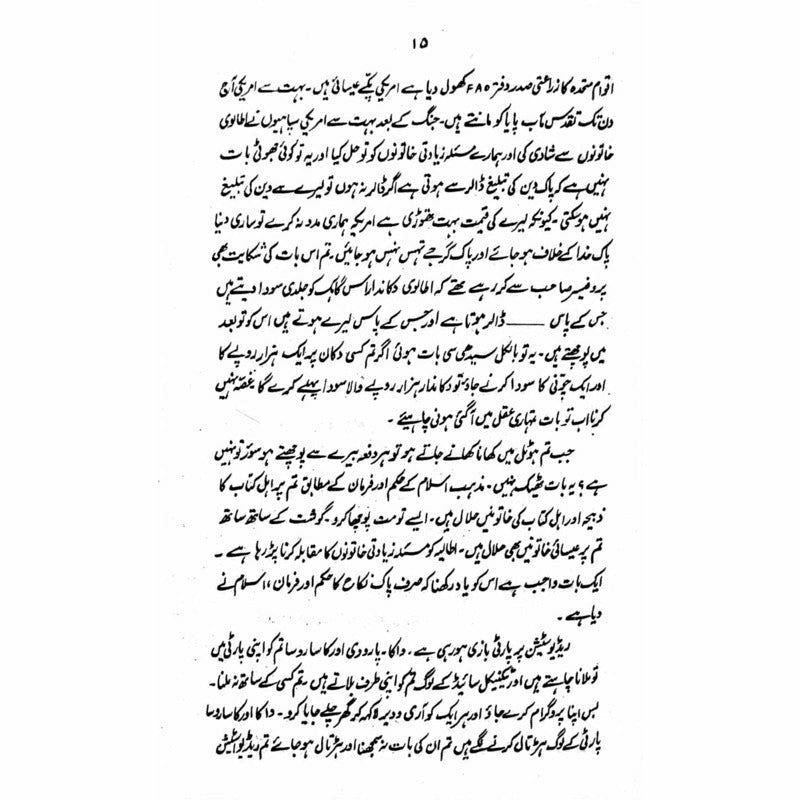 ۱۵
اقوام متحدہ کا زراعتی صدر دفتر FAO کھول دیا ہے امریکی پکے عیسائی ہیں۔ بہت سے امریکی آج
دن تک تقدس مآب پاپا کو مانتے ہیں۔ جنگ کے بعد بہت سے امریکی سپاہیوں نے اطالوی
خاتونوں سے شادی کی اور ہمارے مسئلہ زیادتی خاتونوں کو تو حل کیا اور یہ تو کوئی جھوٹی بات
نہیں ہے کہ پاک دین کی تبلیغ ڈالر سے ہوتی ہے اگر ڈالر نہ ہوں تو لیرے سے دین کی تبلیغ
نہیں ہو سکتی۔ کیونکہ لیرے کی قیمت بہت تھوڑی ہے امریکہ ہماری مدد نہ کرے تو ساری دنیا
پاک خدا کے خلاف ہو جائے اور پاک گرجے تہس نہس ہو جائیں۔ تم اس بات کی شکایت بھی
پروفیسر صاحب سے کر رہے تھے کہ اطالوی دکاندار اس گاہک کو جلدی سودا دیتے ہیں
جس کے پاس ــــــ ڈالر ہوتا ہے اور جس کے پاس لیرے ہوتے ہیں اس کو تو بعد
میں پوچھتے ہیں۔ یہ تو بالکل سیدھی سی بات ہوئی اگر تم کسی دکان پر ایک ہزار روپے کا
اور ایک چونی کا سودا کرنے جاؤ تو دکاندار ہزار روپے والا سودا پہلے کرے گا غصہ نہیں
کرنا اب تو بات تمہاری عقل میں آ گئی ہونی چاہیئے۔
جب تم ہوٹل میں کھانا کھانے جاتے ہو تو ہر دفعہ بیرے سے پوچھتے ہو سؤر تو نہیں
ہے؟ یہ بات ٹھیک نہیں۔ مذہب اسلام کے حکم اور فرمان کے مطابق تم پر اہل کتاب کا
ذبیحہ اور اہل کتاب کی خاتونیں حلال ہیں۔ ایسے تو مت پوچھا کرو۔ گوشت کے ساتھ ساتھ
تم پر عیسائی خاتونیں بھی حلال ہیں۔ اطالیہ کو مسئلہ زیادتی خاتونوں کا مقابلہ کرنا پڑ رہا ہے۔
ایک بات واجب ہے اس کو یاد رکھنا کہ صرف پاک نکاح کا حکم اور فرمان، اسلام نے
دیا ہے۔
ریڈیو سٹیشن پر پارٹی بازی ہو رہی ہے۔ داکا۔ پارودی اور کاسارو سا تم کو اپنی پارٹی میں
تو ملانا چاہتے ہیں اور ٹیکنیکل سائیڈ کے لوگ تم کو اپنی طرف بلاتے ہیں۔ تم کسی کے ساتھ نہ ملنا۔
بس اپنا پروگرام کرے جاؤ اور ہر ایک کو آری ویدیرلا کہہ کر گھر چلے جایا کرو۔ داکا اور کاسارو سا
پارٹی کے لوگ ہڑتال کرنے لگے ہیں تم ان کی بات نہ سمجھنا اور ہڑتال ہو جائے تم ریڈیو اسٹیشن